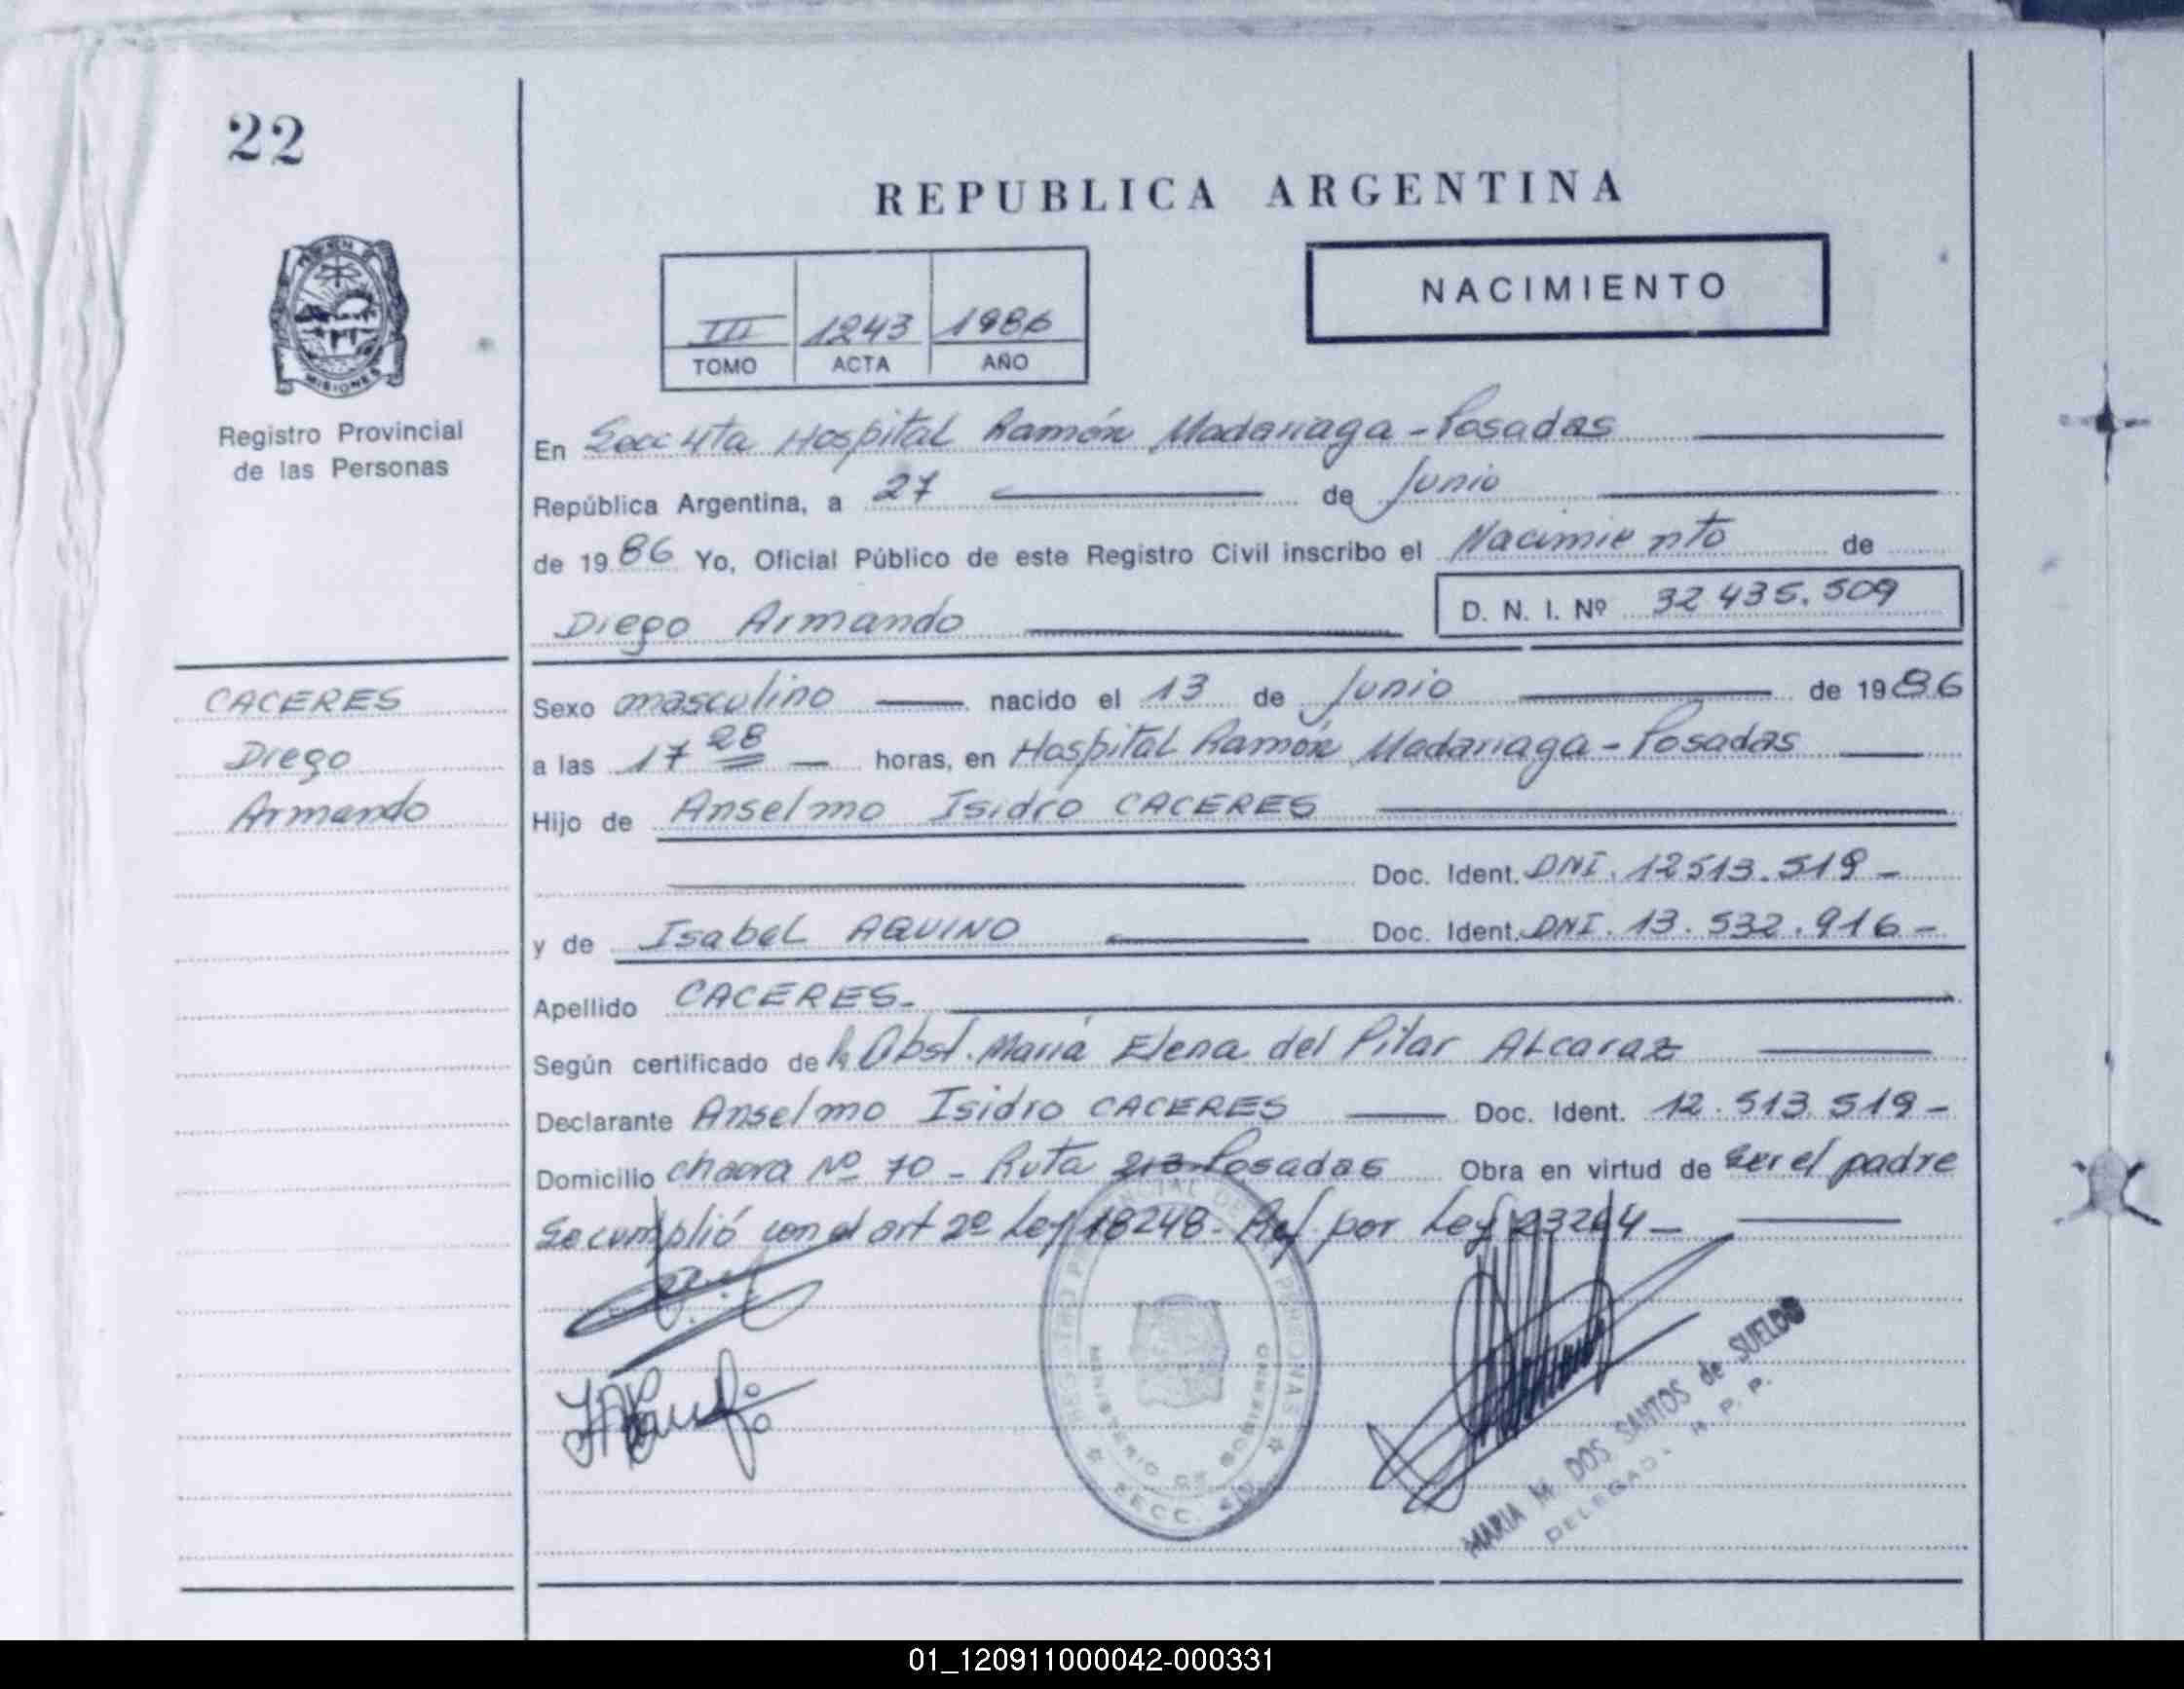 22
REPUBLICA ARGENTINA
NACIMIENTO
III 1243 1986
TOMO ACTA AÑO
MISIONES
Registro Provincial
de las Personas
En Secc 4ta Hospital Ramón Madariaga - Posadas
República Argentina, a 27 de Junio
de 1986 Yo, Oficial Público de este Registro Civil inscribo el Nacimiento de
Diego Armando D. N. I. Nº 32 435.509
CACERES
Diego
Armando
Sexo masculino nacido el 13 de Junio de 1986
a las 17 28 horas, en Hospital Ramón Madariaga - Posadas
Hijo de Anselmo Isidro CACERES
Doc. Ident. DNI. 12513.519 -
y de Isabel AQUINO Doc. Ident. DNI. 13.532.916 -
Apellido CACERES.
Según certificado de la Obst. María Elena del Pilar ALcaraz
Declarante Anselmo Isidro CACERES Doc. Ident. 12.513.519 -
Domicilio chacra Nº 70 - Ruta 213 Posadas Obra en virtud de ser el padre
Se cumplió con el art 2º Ley 18248 - Ref. por Ley 23264 -
REGISTRO PROVINCIAL DE LAS PERSONAS
MINISTERIO DE GOBIERNO
SECC. 4ta
MARIA M. DOS SANTOS de SUELDO
DELEGADA - R. P. P.
01_120911000042-000331